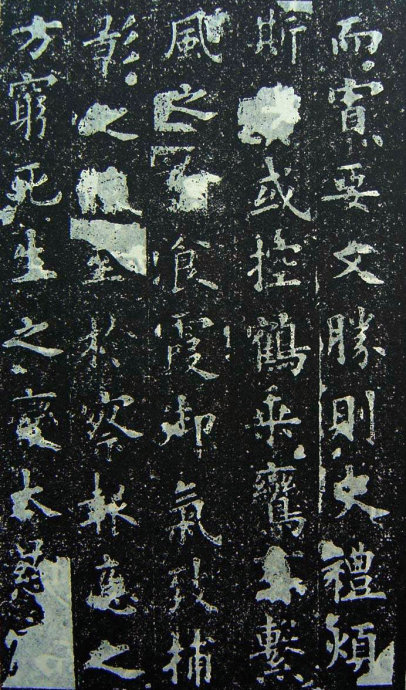 而寡要文勝則史禮煩
斯或控鶴乘鸞有繫
風之飡霞御氣致捕
影之至於察報應之
方窮死生之變大慈